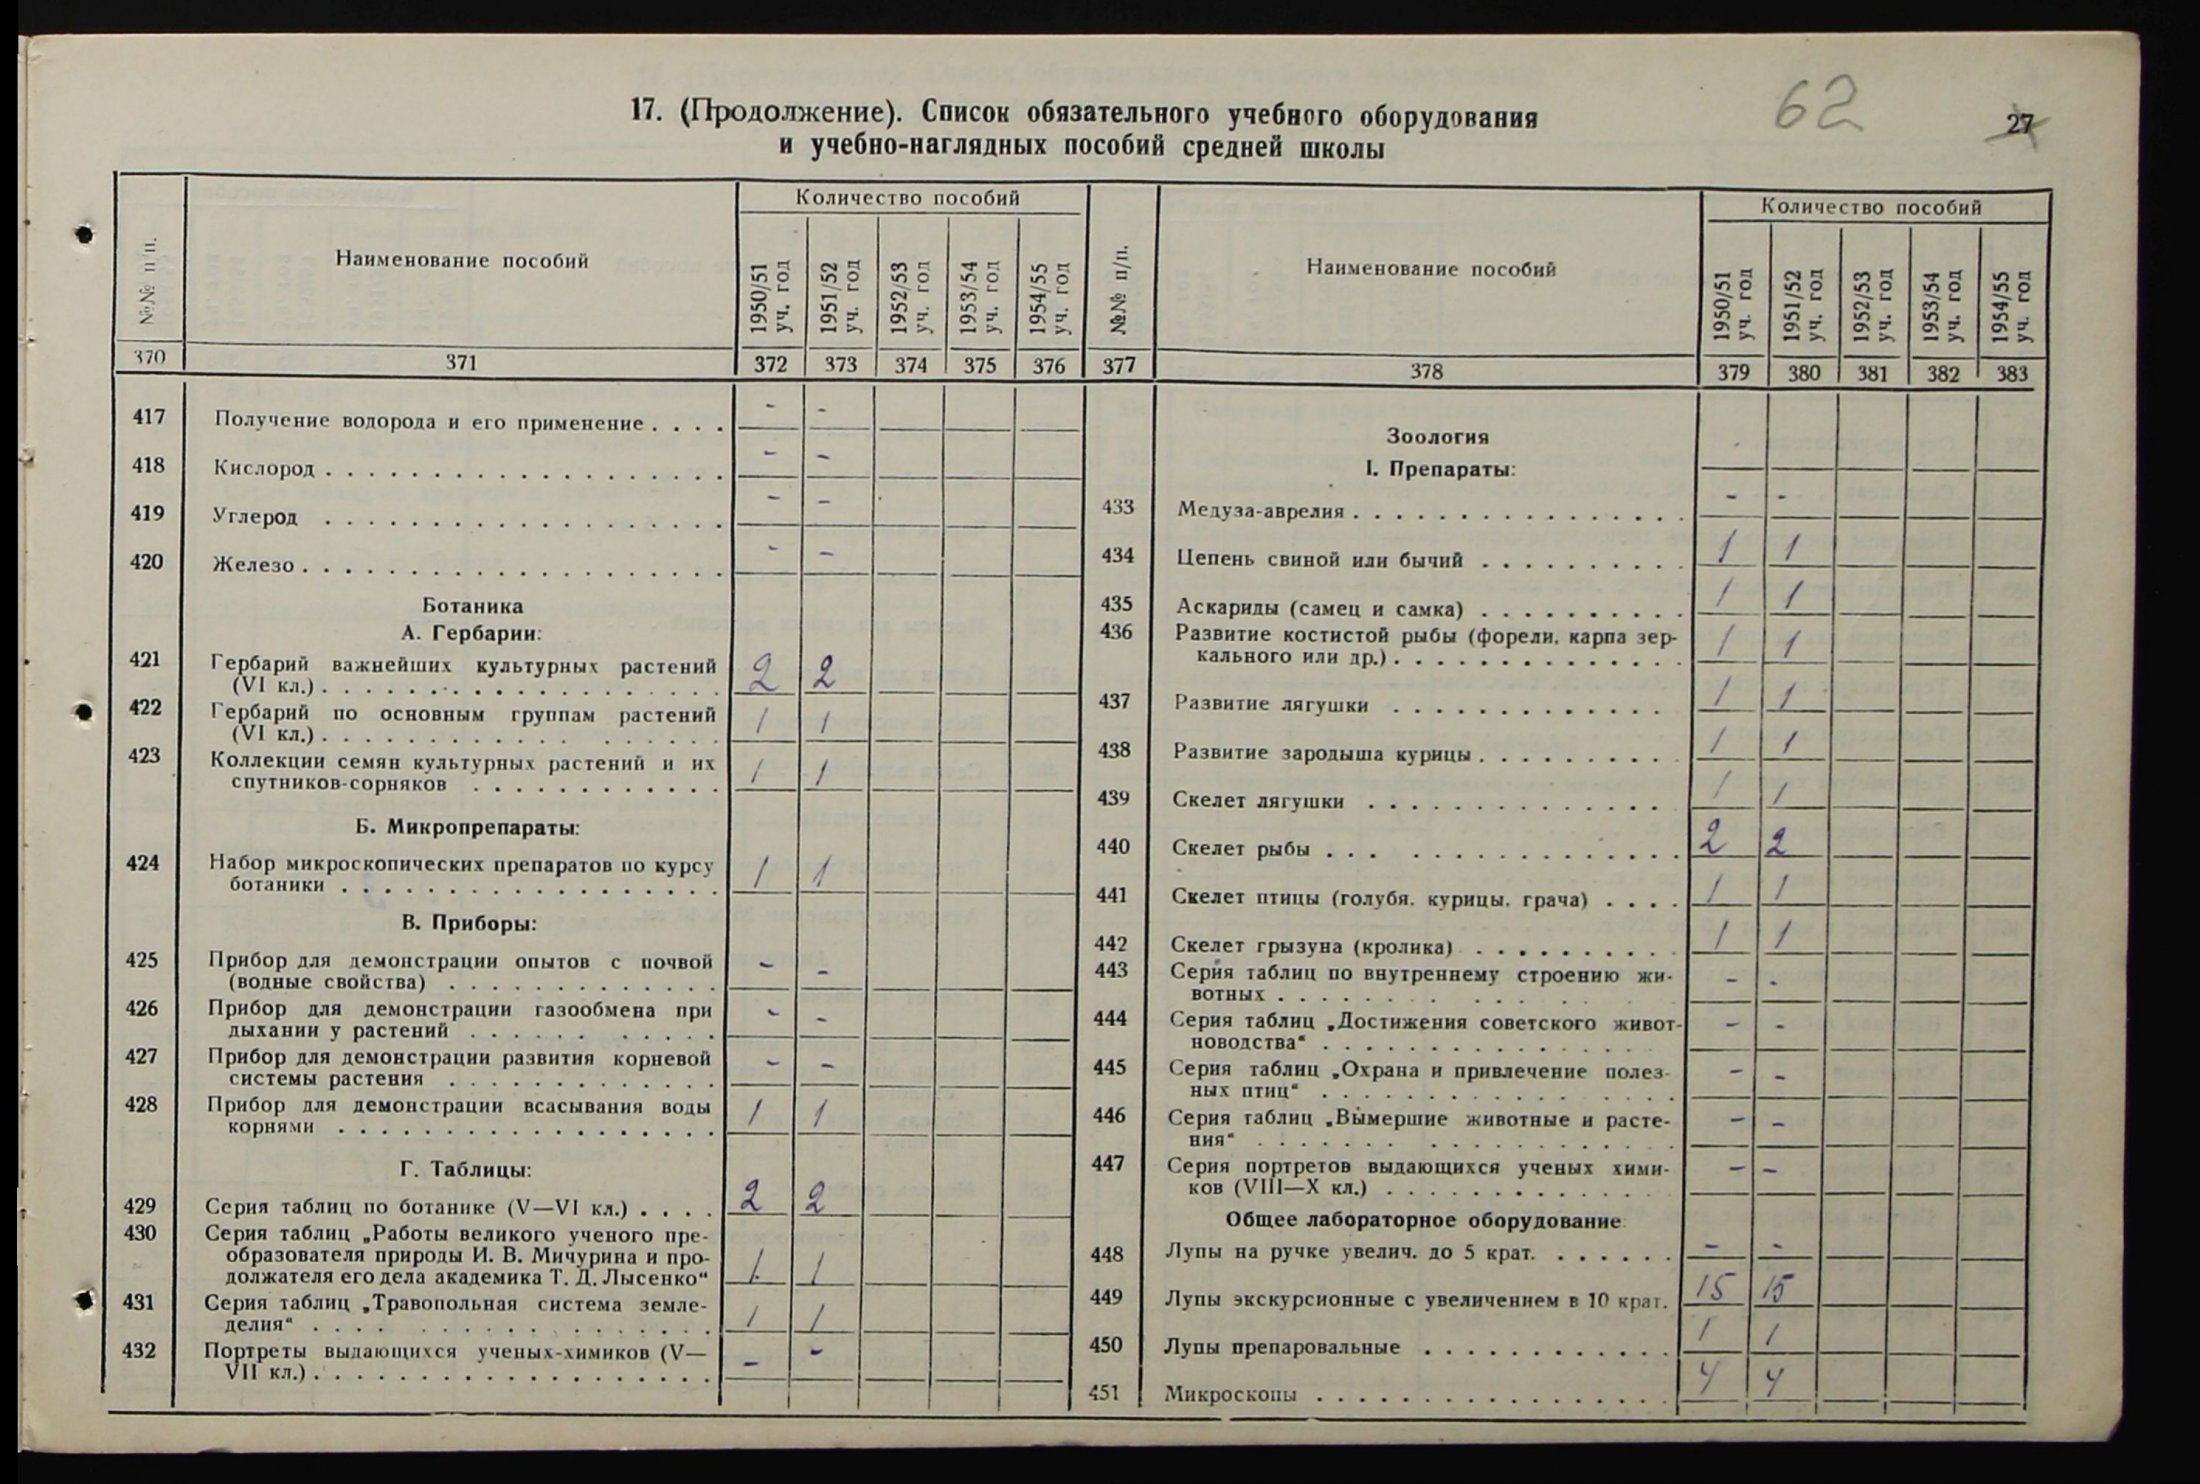 17. (Продолжение). Список обязательного учебного оборудования
и учебно-наглядных пособий средней школы
62
27
№№ п/п.
Наименование пособий
Количество пособий
1950/51 уч. год
1951/52 уч. год
1952/53 уч. год
1953/54 уч. год
1954/55 уч. год
370 371 372 373 374 375 376
417 Получение водорода и его применение . . . . - -
418 Кислород . . . . - -
419 Углерод . . . . - -
420 Железо . . . . - -
Ботаника
А. Гербарии:
421 Гербарий важнейших культурных растений 2 2
(VI кл.) . . . .
422 Гербарий по основным группам растений 1 1
(VI кл.) . . . .
423 Коллекции семян культурных растений и их 1 1
спутников-сорняков . . . .
Б. Микропрепараты:
424 Набор микроскопических препаратов по курсу 1 1
ботаники . . . .
В. Приборы:
425 Прибор для демонстрации опытов с почвой - -
(водные свойства) . . . .
426 Прибор для демонстрации газообмена при - -
дыхании у растений . . . .
427 Прибор для демонстрации развития корневой - -
системы растения . . . .
428 Прибор для демонстрации всасывания воды 1 1
корнями . . . .
Г. Таблицы:
429 Серия таблиц по ботанике (V—VI кл.) . . . . 2 2
430 Серия таблиц „Работы великого ученого пре-
образователя природы И. В. Мичурина и про-
должателя его дела академика Т. Д. Лысенко“ 1 1
431 Серия таблиц „Травопольная система земле-
делия“ . . . . 1 1
432 Портреты выдающихся ученых-химиков (V— - -
VII кл.) . . . .
№№ п/п.
Наименование пособий
Количество пособий
1950/51 уч. год
1951/52 уч. год
1952/53 уч. год
1953/54 уч. год
1954/55 уч. год
377 378 379 380 381 382 383
Зоология
I. Препараты:
433 Медуза-аврелия . . . . - -
434 Цепень свиной или бычий . . . . 1 1
435 Аскариды (самец и самка) . . . . 1 1
436 Развитие костистой рыбы (форели, карпа зер- 1 1
кального или др.) . . . .
437 Развитие лягушки . . . . 1 1
438 Развитие зародыша курицы . . . . 1 1
439 Скелет лягушки . . . . 1 1
440 Скелет рыбы . . . . 2 2
441 Скелет птицы (голубя, курицы, грача) . . . . 1 1
442 Скелет грызуна (кролика) . . . . 1 1
443 Серия таблиц по внутреннему строению жи- - -
вотных . . . .
444 Серия таблиц „Достижения советского живот- - -
новодства“ . . . .
445 Серия таблиц „Охрана и привлечение полез- - -
ных птиц“ . . . .
446 Серия таблиц „Вымершие животные и расте- - -
ния“ . . . .
447 Серия портретов выдающихся ученых хими- - -
ков (VIII—X кл.) . . . .
Общее лабораторное оборудование
448 Лупы на ручке увелич. до 5 крат. . . . . - -
449 Лупы экскурсионные с увеличением в 10 крат. 15 15
450 Лупы препаровальные . . . . 1 1
451 Микроскопы . . . . 4 4